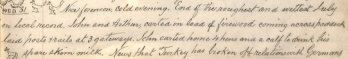 WED 31
evening. End of the roughest and wettest July
on local record. John and Arthur carted in load of firewood coming across paddock
laid posts & rails at 3 gateways. John carted home 4 hens and a calf to drink his
spare skim milk. News that Turkey has broken off relations with Germany